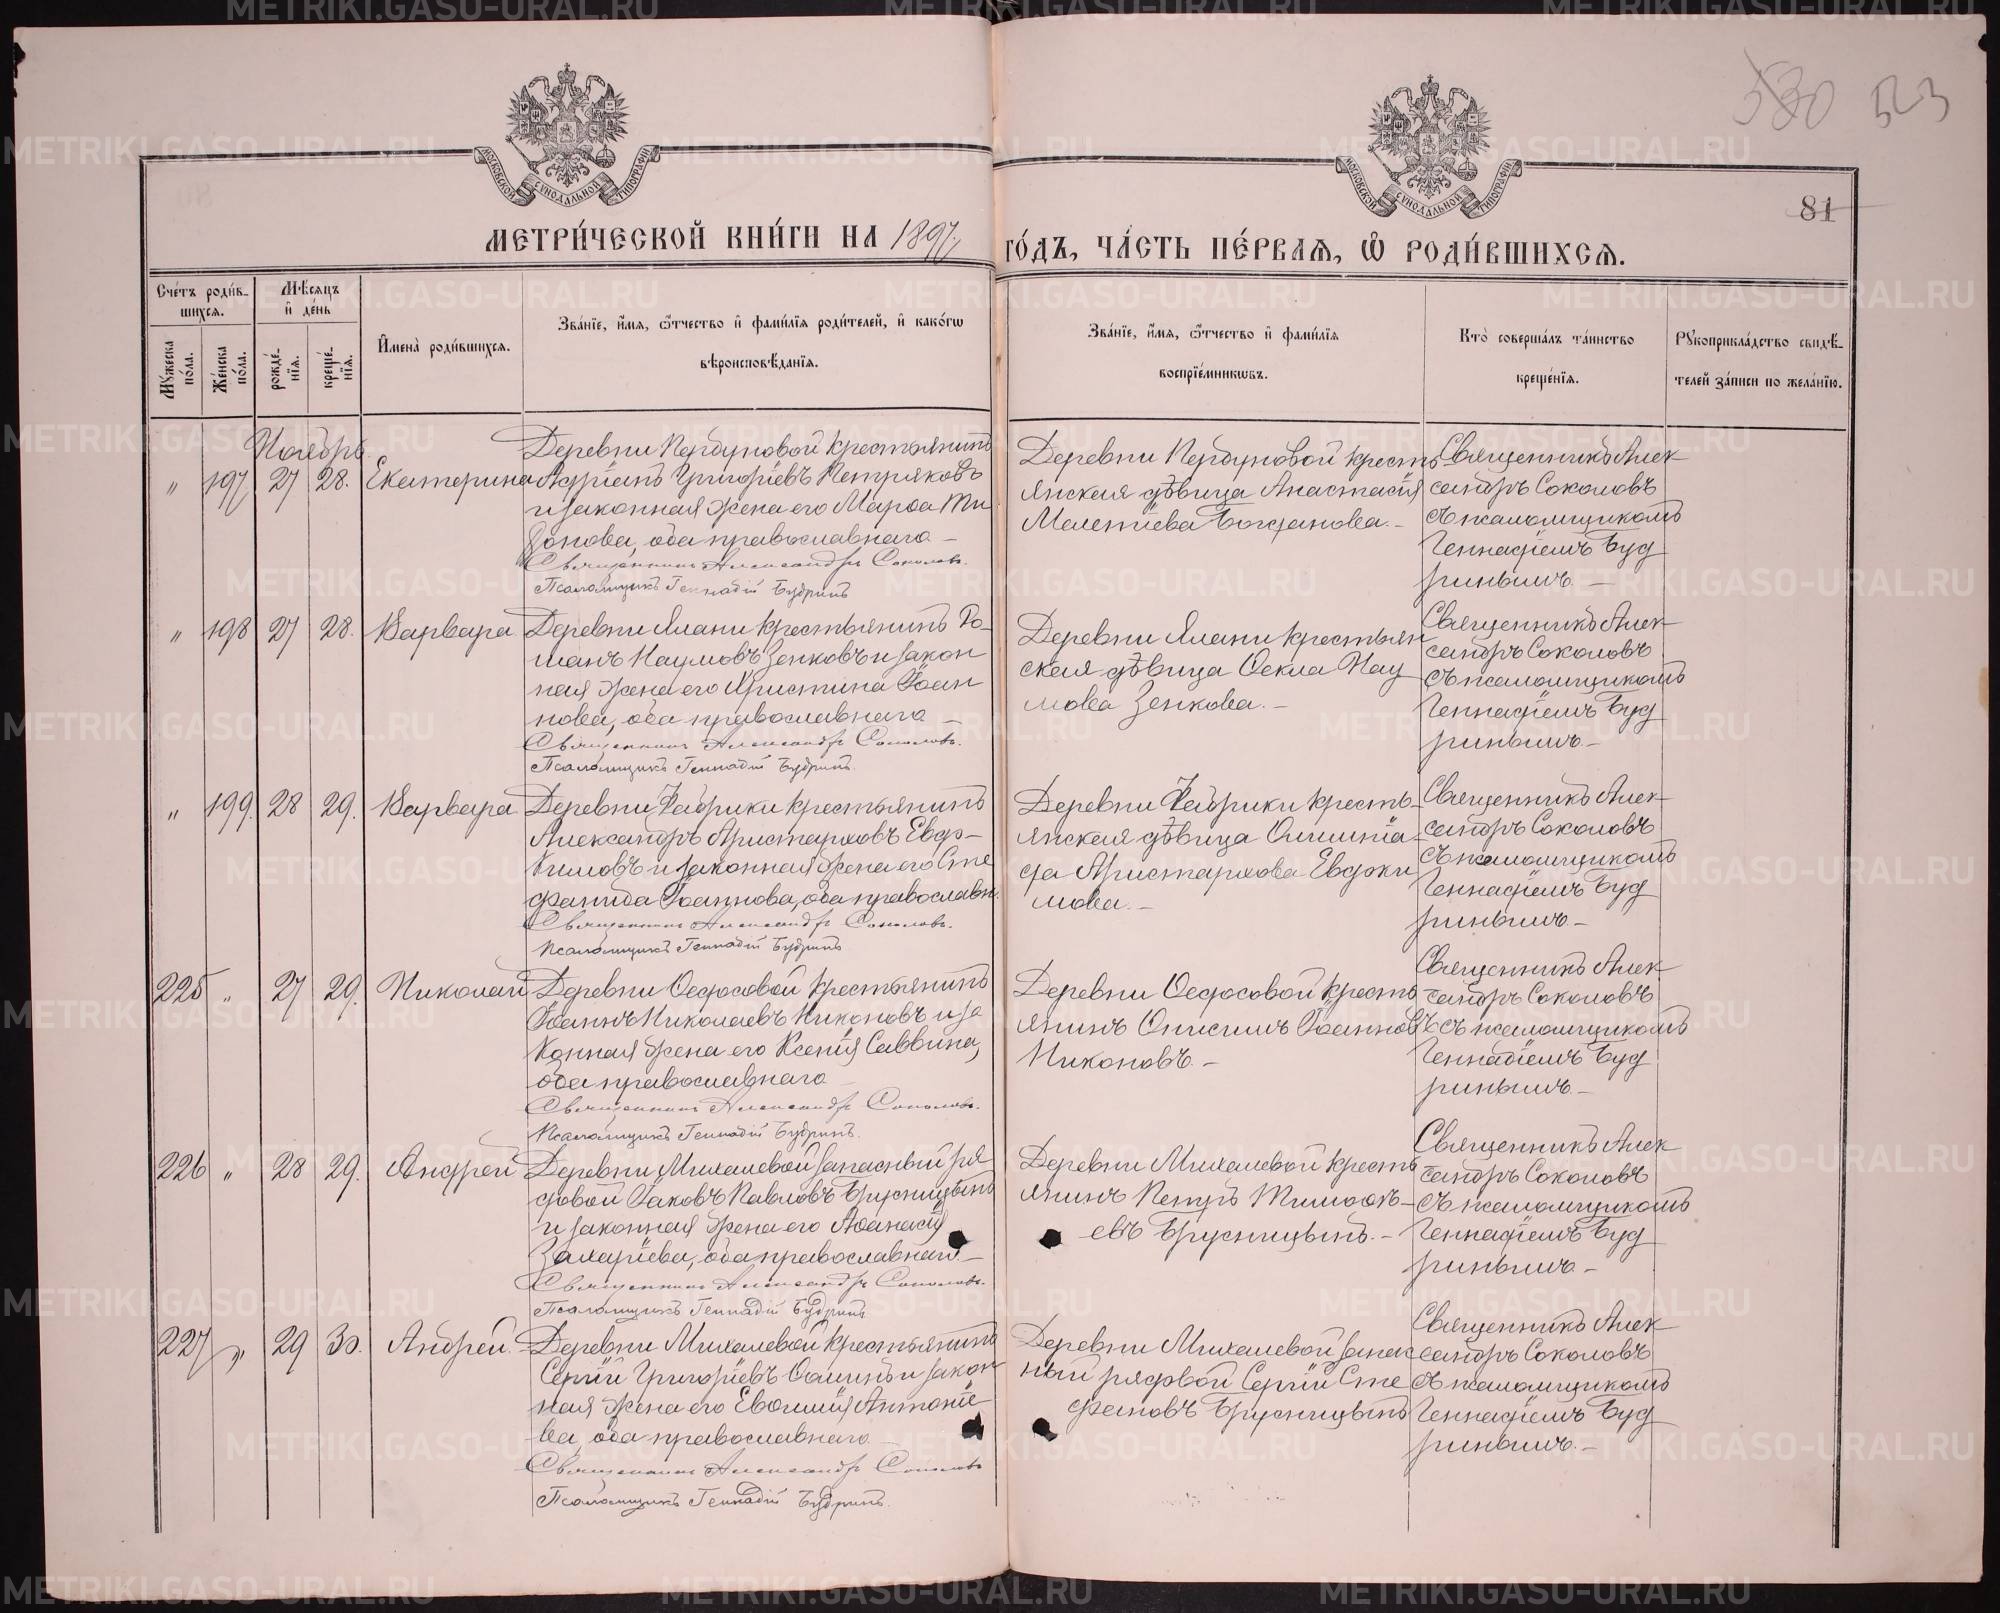 530 523
МОСКОВСКОЙ СѴНОДАЛЬНОЙ ТИПОГРАФІИ
МОСКОВСКОЙ СѴНОДАЛЬНОЙ ТИПОГРАФІИ
81
МЕТРИ́ЧЕСКОЙ КНИ́ГИ НА 1897 ГО́ДЪ, ЧА́СТЬ ПЕ́РВАѦ, Ѡ РОДИ́ВШИХСѦ.
Сче́тъ роди́в-
шихсѧ.
Мꙋжеска по́ла.
Же́нска по́ла.
Мѣ́сѧцъ и҆ де́нь
рожде́-нїѧ.
креще́-нїѧ.
И҆мена̀ роди́вшихсѧ.
Зва́нїе, и҆́мѧ, ѻ҆́тчество и҆ фами́лїѧ роди́телей, и҆ како́гѡ
вѣроисповѣ́данїѧ.
Зва́нїе, и҆́мѧ, ѻ҆́тчество и҆ фами́лїѧ
воспрїе́мникѡвъ.
Кто̀ соверша́лъ та́инство
креще́нїѧ.
Рꙋкоприкла́дство свидѣ́-
телей за́писи по жела́нїю.
Ноябрь.
" 197 27 28. Екатерина
Деревни Пердуновой крестьянинъ
Адріанъ Григорьевъ Петряковъ
и законная жена его Марѳа Ти
хонова, оба православнаго —
Священникъ Александръ Соколовъ.
Псаломщикъ Геннадій Будринъ
Деревни Пердуновой кресть-
янская дѣвица Анастасія
Мелетіева Богданова. —
Священникъ Алек
сандръ Соколовъ
съ псаломщикомъ
Геннадіемъ Буд
ринымъ —
" 198 27 28. Варвара
Деревни Ялани крестьянинъ Ро-
манъ Наумовъ Зенковъ и закон
ная жена его Христина Іоан
нова, оба православнаго —
Священникъ Александръ Соколовъ.
Псаломщикъ Геннадій Будринъ.
Деревни Ялани крестьян
ская дѣвица Ѳекла Нау
мова Зенкова. —
Священникъ Алек-
сандръ Соколовъ
съ псаломщикомъ
Геннадіемъ Буд
ринымъ. —
" 199. 28 29. Варвара
Деревни Фабрики крестьянинъ
Александръ Аристарховъ Евдо-
кимовъ и законная жена его Сте
фанида Іоаннова, оба православн.
Священникъ Александръ Соколовъ.
Псаломщикъ Геннадій Будринъ
Деревни Фабрики кресть-
янская дѣвица Олимпіа-
да Аристархова Евдоки
мова. —
Священникъ Алек-
сандръ Соколовъ
съ псаломщикомъ
Геннадіемъ Буд
ринымъ —
225 " 27 29. Николай
Деревни Ѳедосовой крестьянинъ
Іоаннъ Николаевъ Никоновъ и за
конная жена его Ксенія Саввина,
оба православнаго
Священникъ Александръ Соколовъ.
Псаломщикъ Геннадій Будринъ.
Деревни Ѳедосовой кресть
янинъ Онисимъ Іоанновъ
Никоновъ. —
Священникъ Алек-
сандръ Соколовъ
съ псаломщикомъ
Геннадіемъ Буд
ринымъ —
226 " 28 29. Андрей
Деревни Михалевой запасный ря
довой Іаковъ Павловъ Брусницынъ
и законная жена его Аѳанасія
Захаріева, оба православнаго. —
Священникъ Александръ Соколовъ.
Псаломщикъ Геннадій Будринъ
Деревни Михалевой кресть
янинъ Петръ Тимоѳе-
евъ Брусницынъ. —
Священникъ Алек
сандръ Соколовъ
съ псаломщикомъ
Геннадіемъ Буд
ринымъ —
227 " 29 30. Андрей.
Деревни Михалевой крестьянинъ
Сергій Григорьевъ Ѳоминъ и закон
ная жена его Евѳимія Антоніе
ва, оба православнаго —
Священникъ Александръ Соколовъ
Псаломщикъ Геннадій Будринъ.
Деревни Михалевой запас
ный рядовой Сергій Сте
фановъ Брусницынъ
Священникъ Алек
сандръ Соколовъ
съ псаломщикомъ
Геннадіемъ Буд
ринымъ. —
METRIKI.GASO-URAL.RU